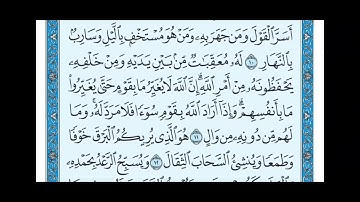 أَسَرَّ ٱلْقَوْلَ وَمَن جَهَرَ بِهِۦ وَمَنْ هُوَ مُسْتَخْفٍۭ بِٱلَّيْلِ وَسَارِبٌۢ
بِٱلنَّهَارِ ١٠ لَهُۥ مُعَقِّبَٰتٌ مِّنۢ بَيْنِ يَدَيْهِ وَمِنْ خَلْفِهِۦ
يَحْفَظُونَهُۥ مِنْ أَمْرِ ٱللَّهِ إِنَّ ٱللَّهَ لَا يُغَيِّرُ مَا بِقَوْمٍ حَتَّىٰ يُغَيِّرُوا۟
مَا بِأَنفُسِهِمْ وَإِذَآ أَرَادَ ٱللَّهُ بِقَوْمٍ سُوٓءًا فَلَا مَرَدَّ لَهُۥ وَمَا
لَهُم مِّن دُونِهِۦ مِن وَالٍ ١١ هُوَ ٱلَّذِى يُرِيكُمُ ٱلْبَرْقَ خَوْفًا
وَطَمَعًا وَيُنشِئُ ٱلسَّحَابَ ٱلثِّقَالَ ١٢ وَيُسَبِّحُ ٱلرَّعْدُ بِحَمْدِهِۦ